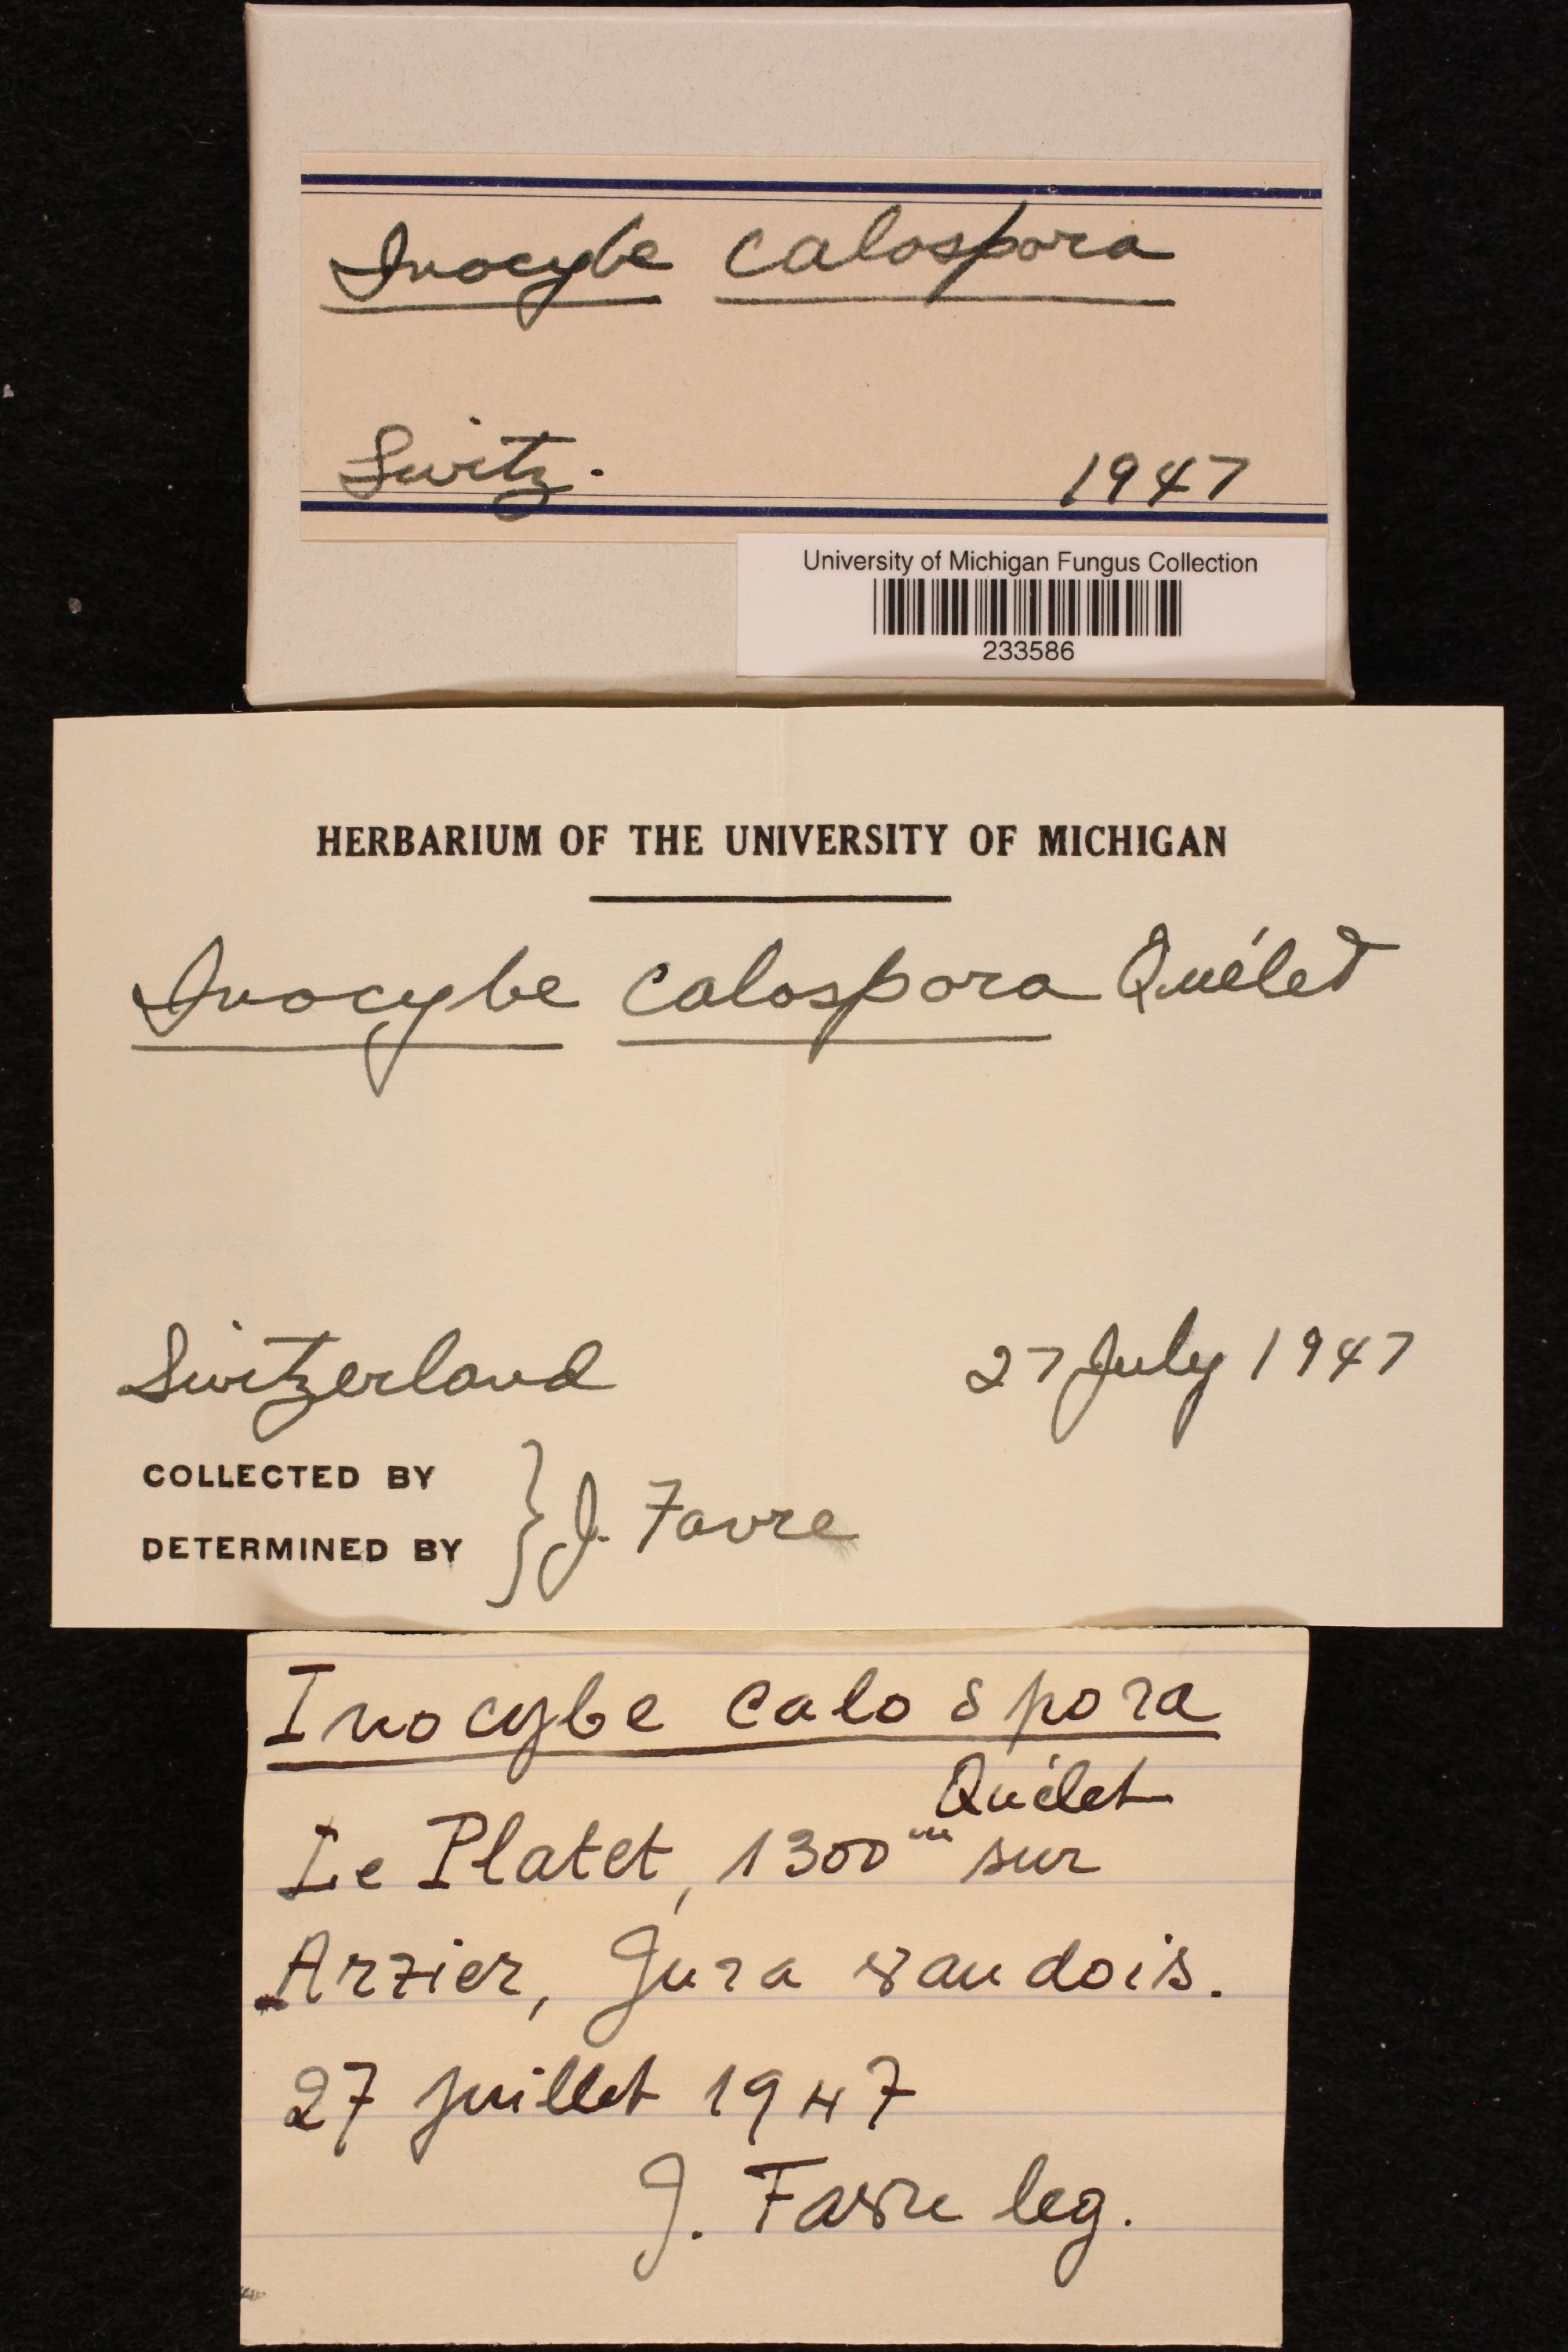 Inocybe calospora
Switz. 1947
University of Michigan Fungus Collection
233586
HERBARIUM OF THE UNIVERSITY OF MICHIGAN
Inocybe calospora Quélet
Switzerland 27 July 1947
COLLECTED BY
DETERMINED BY } J. Favre
Inocybe calospora
Quélet
Le Platet, 1300 m sur
Arzier, Jura vaudois.
27 juillet 1947
J. Favre leg.